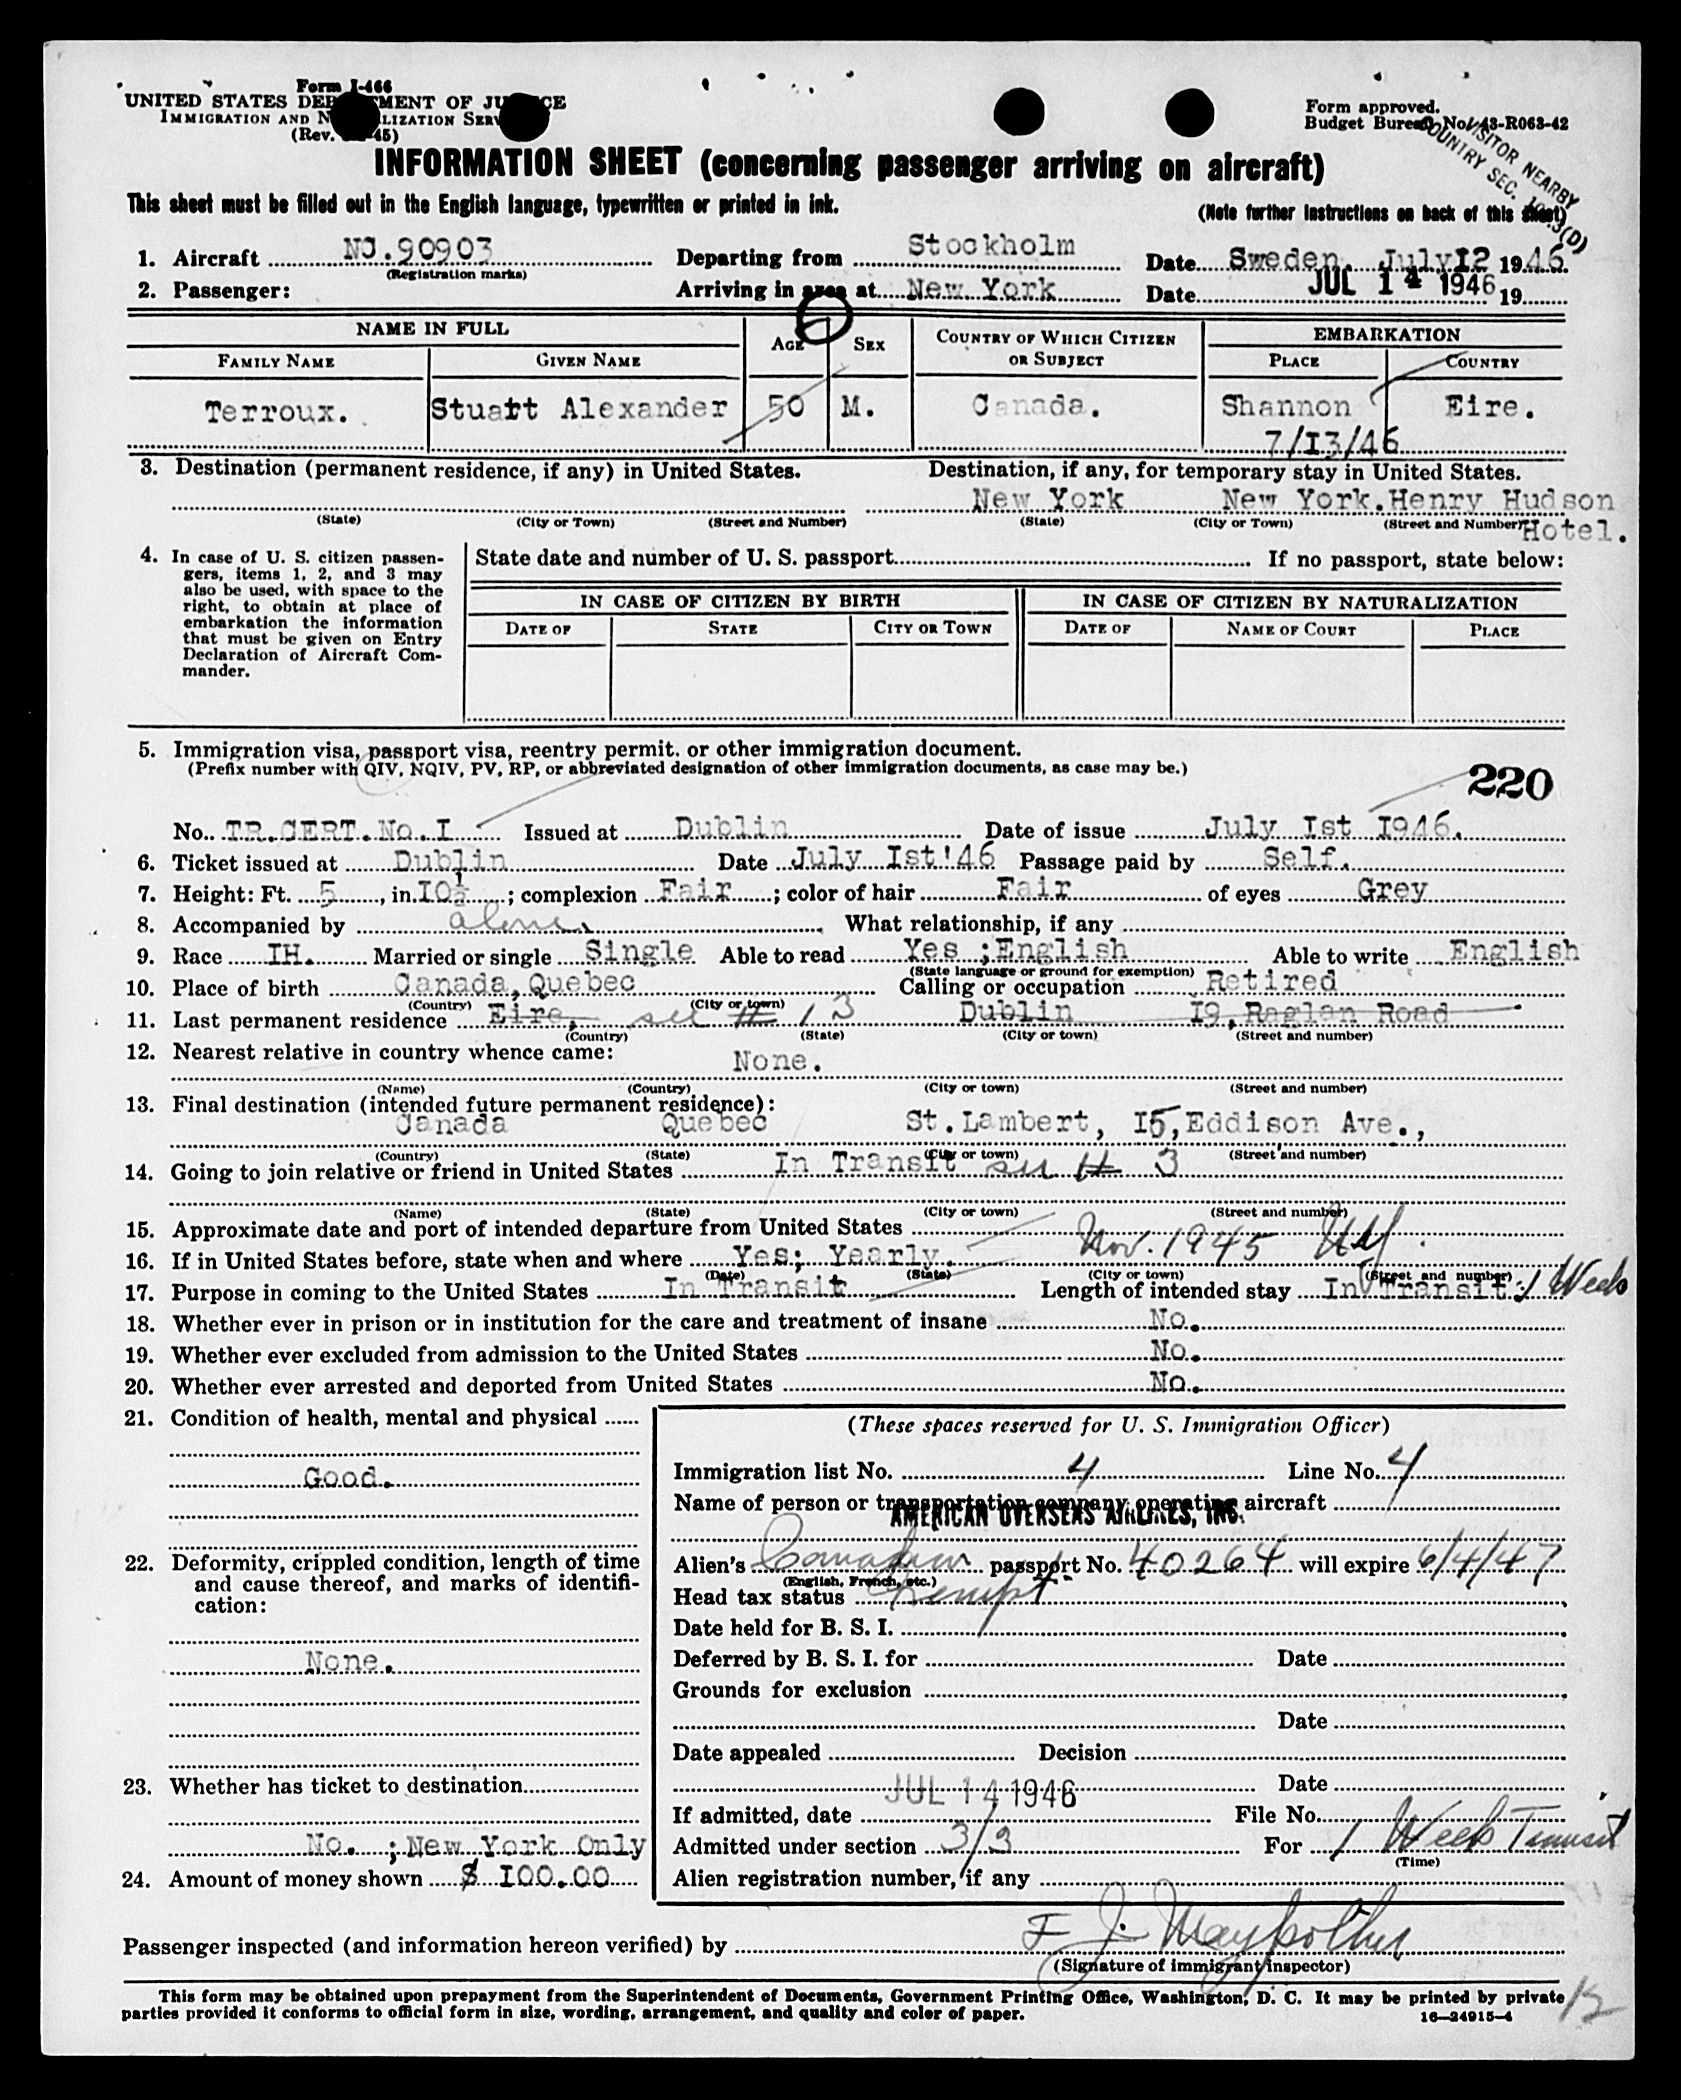 Form I-466
UNITED STATES DEPARTMENT OF JUSTICE
IMMIGRATION AND NATURALIZATION SERVICE
(Rev. 45)
Form approved.
Budget Bureau No. 43-R063-42
VISITOR NEARBY
COUNTRY SEC. (D)
INFORMATION SHEET (concerning passenger arriving on aircraft)
This sheet must be filled out in the English language, typewritten or printed in ink.
(Note further instructions on back of this sheet)
1. Aircraft NC.90903 Departing from Stockholm Date Sweden. July I2 1946.
(Registration marks)
2. Passenger: Arriving in area at New York Date JUL 14 1946 19
6
NAME IN FULL AGE SEX COUNTRY OF WHICH CITIZEN OR SUBJECT EMBARKATION
FAMILY NAME GIVEN NAME PLACE COUNTRY
Terroux. Stuart Alexander 50 M. Canada. Shannon Eire.
7/I3/46
3. Destination (permanent residence, if any) in United States. Destination, if any, for temporary stay in United States.
New York New York. Henry Hudson
(State) (City or Town) (Street and Number) (State) (City or Town) (Street and Number) Hotel.
4. In case of U. S. citizen passen-
gers, items 1, 2, and 3 may
also be used, with space to the
right, to obtain at place of
embarkation the information
that must be given on Entry
Declaration of Aircraft Com-
mander.
State date and number of U. S. passport If no passport, state below:
IN CASE OF CITIZEN BY BIRTH IN CASE OF CITIZEN BY NATURALIZATION
DATE OF STATE CITY OR TOWN DATE OF NAME OF COURT PLACE
5. Immigration visa, passport visa, reentry permit, or other immigration document.
(Prefix number with QIV, NQIV, PV, RP, or abbreviated designation of other immigration documents, as case may be.)
220
No. TR.CERT.No.I Issued at Dublin Date of issue July Ist I946.
6. Ticket issued at Dublin Date July Ist'46 Passage paid by Self.
7. Height: Ft. 5, in. I0½; complexion Fair; color of hair Fair of eyes Grey
8. Accompanied by alone What relationship, if any
9. Race IH. Married or single Single Able to read Yes ;English Able to write English
(State language or ground for exemption)
10. Place of birth Canada, Quebec Calling or occupation Retired
(Country) (City or town)
11. Last permanent residence Eire, see # 13 Dublin I9, Raglan Road
(Country) (State) (City or town) (Street and number)
12. Nearest relative in country whence came: None.
(Name) (Country) (City or town) (Street and number)
13. Final destination (intended future permanent residence):
Canada Quebec St.Lambert, I5,Eddison Ave.,
(Country) (State) (City or town) (Street and number)
14. Going to join relative or friend in United States In Transit see # 3
(Name) (State) (City or town) (Street and number)
15. Approximate date and port of intended departure from United States
16. If in United States before, state when and where Yes; Yearly. Nov. 1945 NY
(Date) (State) (City or town) (Street and number)
17. Purpose in coming to the United States In Transit Length of intended stay In Transit: 1 Week
18. Whether ever in prison or in institution for the care and treatment of insane No.
19. Whether ever excluded from admission to the United States No.
20. Whether ever arrested and deported from United States No.
21. Condition of health, mental and physical
Good.
22. Deformity, crippled condition, length of time
and cause thereof, and marks of identifi-
cation:
None.
23. Whether has ticket to destination
No. ;New York Only
24. Amount of money shown $ I00.00
(These spaces reserved for U. S. Immigration Officer)
Immigration list No. 4 Line No. 4
Name of person or transportation company operating aircraft
AMERICAN OVERSEAS AIRLINES, INC.
Alien's Canadian passport No. 40264 will expire 6/4/47
(English, French, etc.)
Head tax status Exempt
Date held for B. S. I.
Deferred by B. S. I. for Date
Grounds for exclusion
Date
Date appealed Decision
JUL 14 1946 Date
If admitted, date File No.
Admitted under section 3/3 For 1 Week Transit
(Time)
Alien registration number, if any
Passenger inspected (and information hereon verified) by F J.
(Signature of immigrant inspector)
This form may be obtained upon prepayment from the Superintendent of Documents, Government Printing Office, Washington, D. C. It may be printed by private
parties provided it conforms to official form in size, wording, arrangement, and quality and color of paper.
16—24915-4